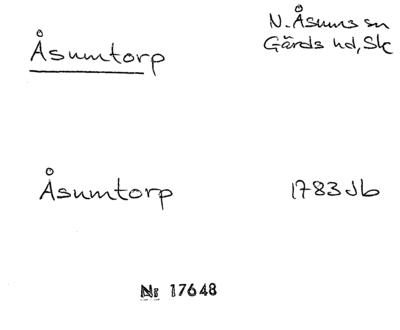 Åsumtorp
N. Åsums sn
Gärds hd, Sk
Åsumtorp
1783 Jb
Nr 17648